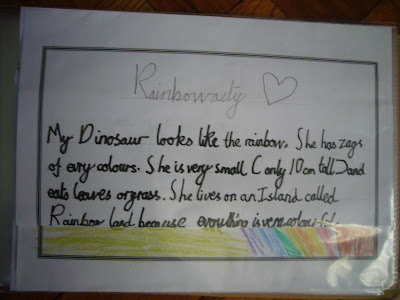 Rainbowacty
My Dinosaur looks like the rainbow. She has zags
of evry colours. She is very small (only 10 cm tall) and
eats leaves or grass. She lives on an Island called
Rainbow land because everything is very colourful.